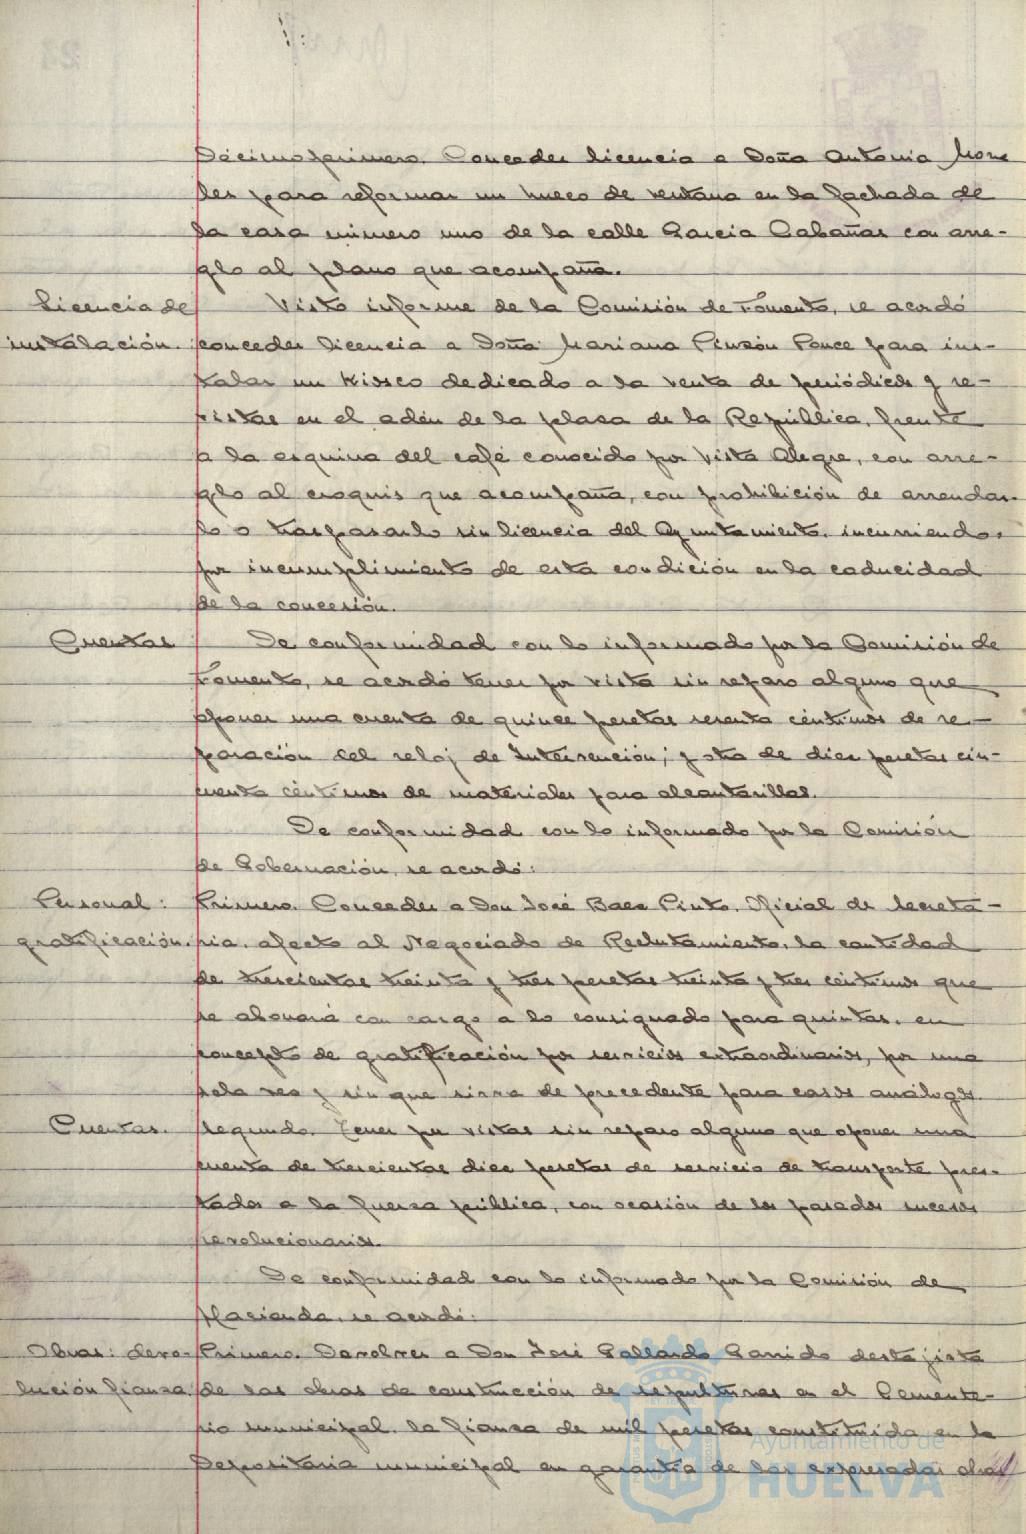 Décimo primero. Conceder licencia a Doña Antonia Mora
les para reformar un hueco de ventana en la fachada de
la casa número uno de la calle García Cabañas con arre-
glo al plano que acompaña.
Licencia de Visto informe de la Comisión de Fomento, se acordó
instalación. conceder licencia a Doña Mariana Pinzón Ponce para ins-
talar un kiosco dedicado a la venta de periódicos y re-
vistas en el adén de la plaza de la República, frente
a la esquina del café conocido por Vista Alegre, con arre-
glo al croquis que acompaña, con prohibición de arrendar-
lo o traspasarlo sin licencia del Ayuntamiento, incurriendo,
por incumplimiento de esta condición en la caducidad
de la concesión.
Cuentas De conformidad con lo informado por la Comisión de
Fomento, se acordó tener por vista sin reparo alguno que
oponer una cuenta de quince pesetas sesenta céntimos de re-
paración del reloj de Intervención; y otra de diez pesetas cin-
cuenta céntimos de materiales para alcantarillas.
De conformidad con lo informado por la Comisión
de Gobernación, se acordó:
Personal: Primero. Conceder a Don José Baez Pinto, Oficial de Secreta-
gratificación. ria, afecto al Negociado de Reclutamiento, la cantidad
de trescientas treinta y tres pesetas treinta y tres céntimos que
se abonará con cargo a lo consignado para quintas, en
concepto de gratificación por servicios extraordinarios, por una
sola vez y sin que sirva de precedente para casos análogos.
Cuentas. Segundo. Tener por vistas sin reparo alguno que oponer una
cuenta de trescientas diez pesetas de servicio de transporte pres-
tados a la fuerza pública, con ocasión de los pasados sucesos
revolucionarios.
De conformidad con lo informado por la Comisión de
Hacienda, se acordó:
Obras: devo- Primero. Devolver a Don José Gallardo Garrido destajista
lución fianza. de las obras de construcción de sepulturas en el Cemente-
rio municipal, la fianza de mil pesetas constituida en la
Depositaria municipal en garantía de las expresadas obras
Ayuntamiento de
HUELVA